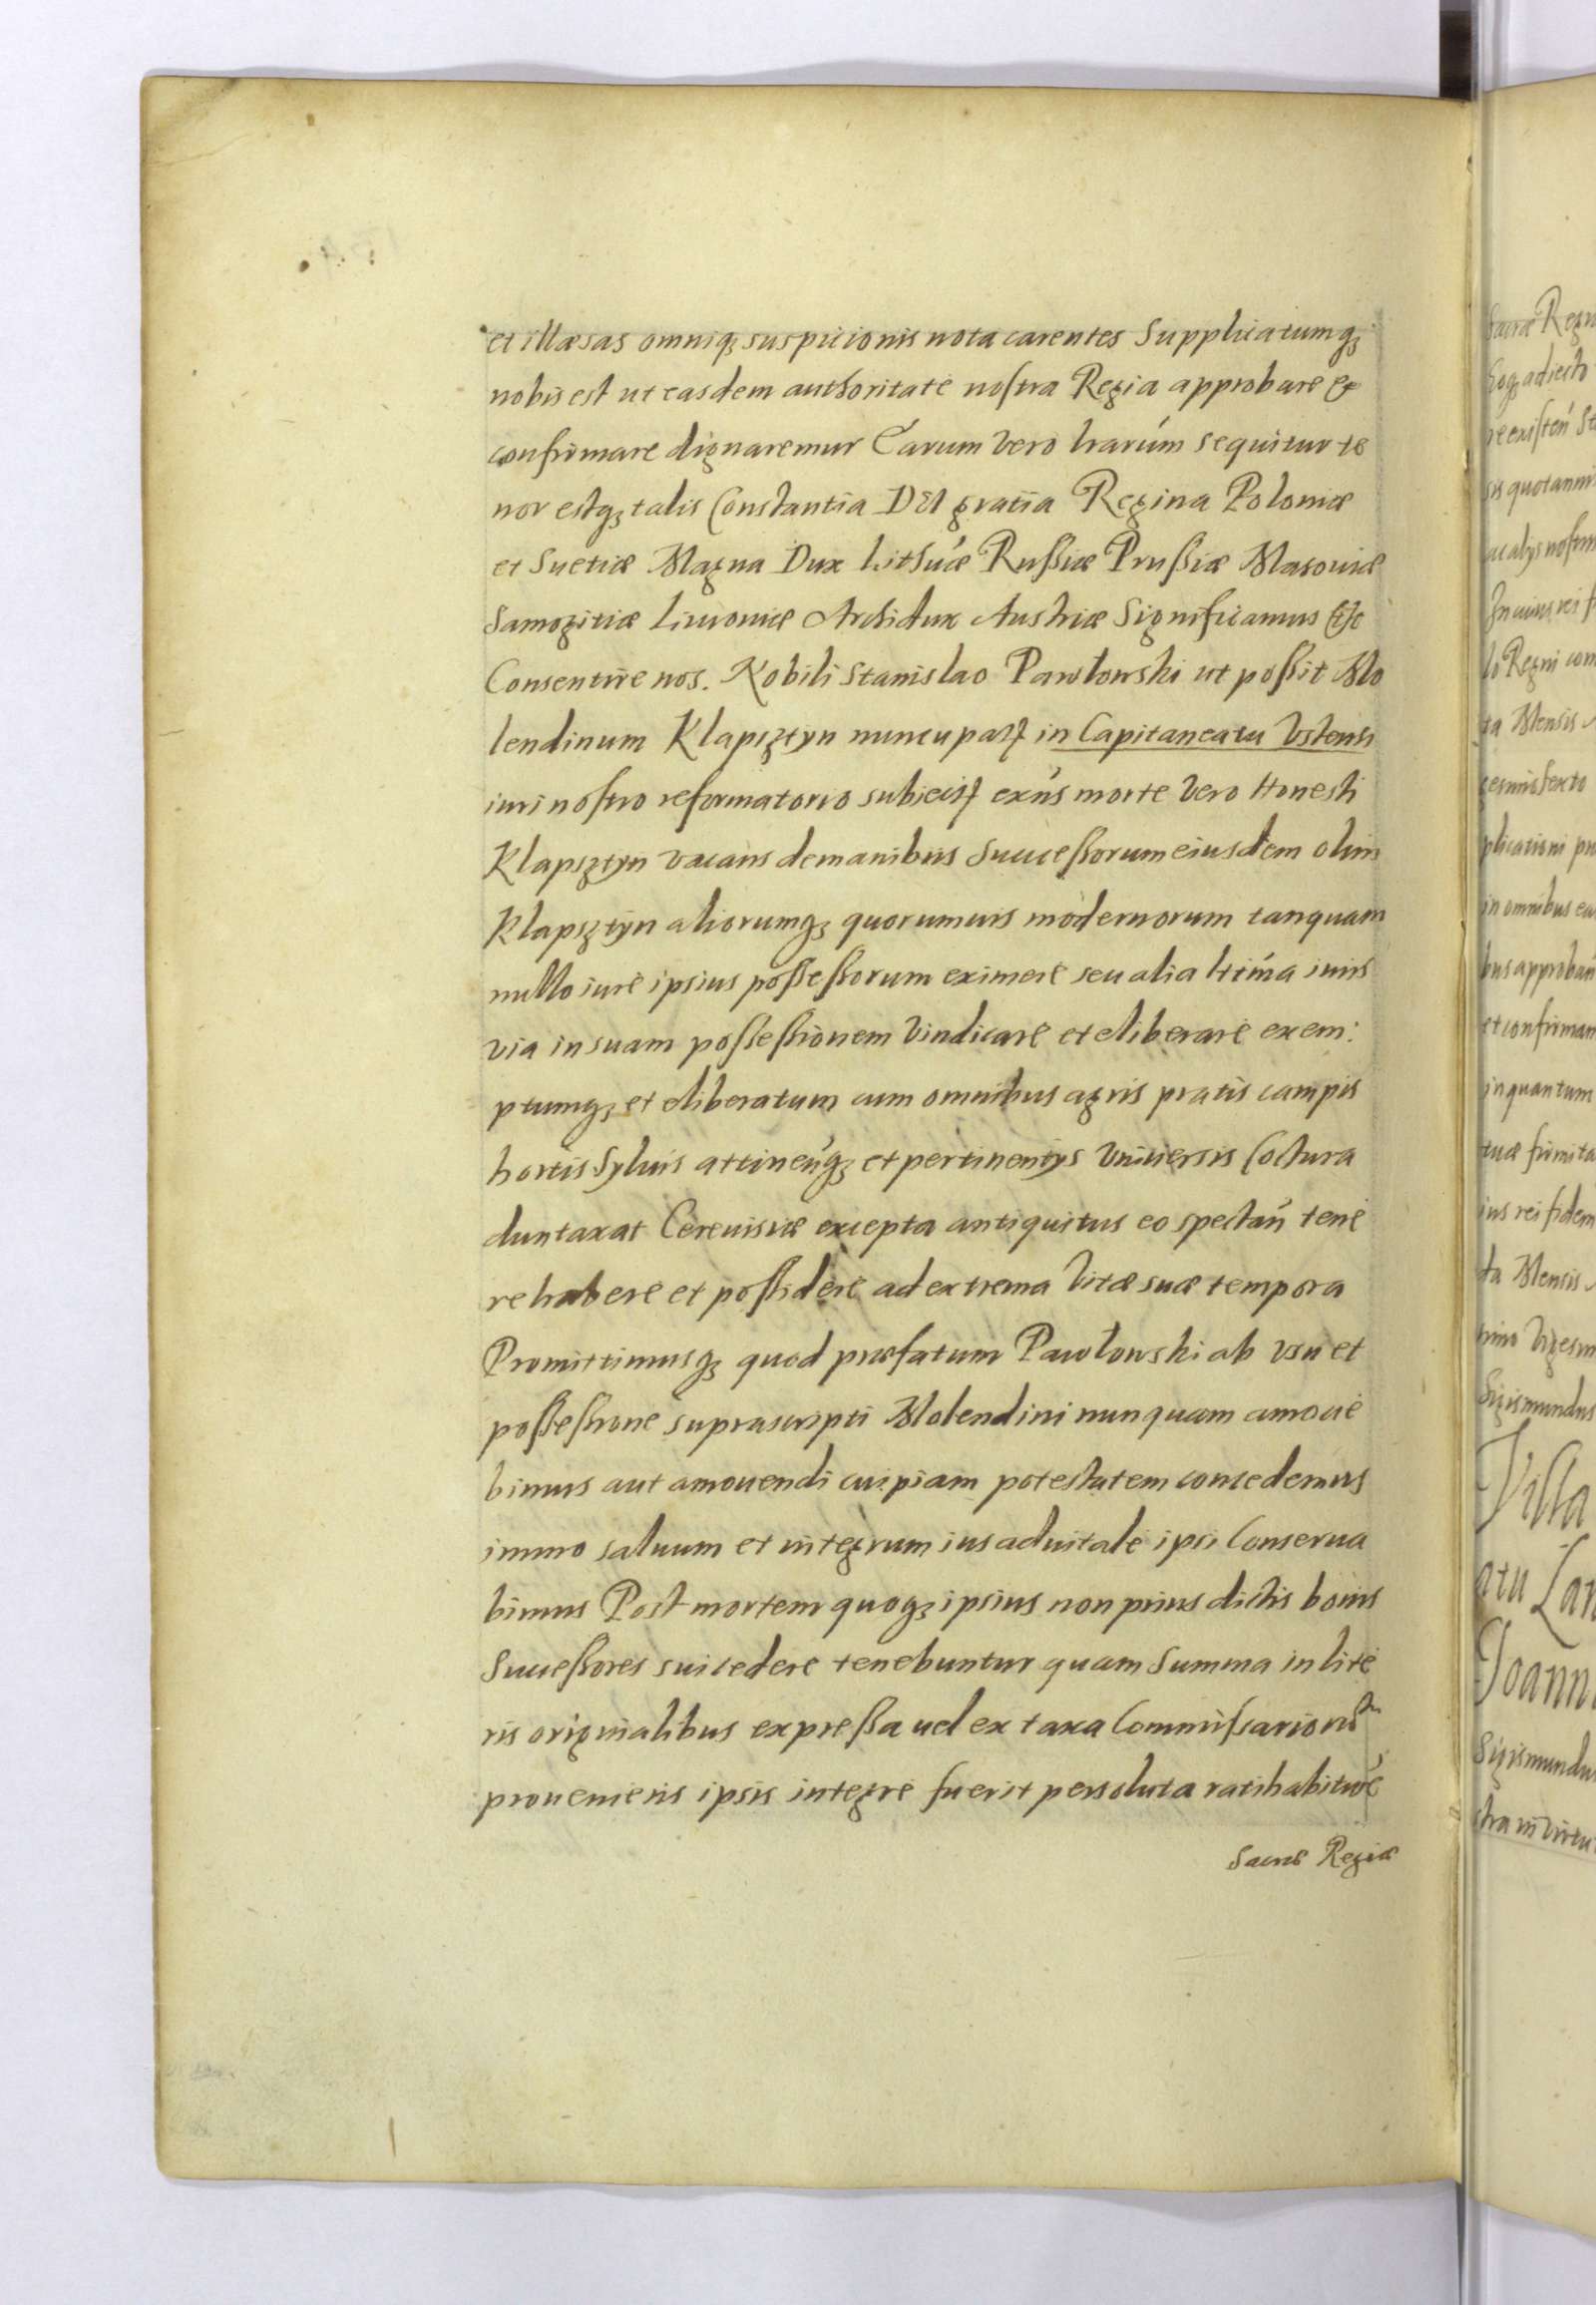 et illæsas omniq₃ suspicionis nota carentes Supplicatumq₃
nobis est ut easdem authoritate nostra Regia approbare et
confirmare dignaremur Earum vero lrarum sequitur te
nor estq₃ talis Constantia DEI gratia Regina Poloniæ
et Suetiæ Magna Dux Lithuæ Rußiæ Prußiæ Masouiæ
Samogitiæ Liuoniæ Archidux Austriæ Significamus Etc
Consentire nos. Nobili Stanislao Pawłowski ut poßit Mo
lendinum Klapsztyn nuncupat in Capitaneatu Vstensi
iuri nostro reformatorio subiect ex ńs morte vero Honesti
Klapsztyn vacans de manibus Succeßorum eiusdem olim
Klapsztyn aliorumq₃ quorumuis modernorum tanquam
nullo iure ipsius poßeßorum eximere seu alia ltima iuris
via in suam poßeßionem vindicare et eliberare exem:
ptumq₃ et eliberatum cum omnibus agris pratis campis
hortis syluis attinenq₃ et pertinentys vniuersis Coctura
duntaxat Cereuisiæ excepta antiquitus eo spectań tene
re habere et poßidere ad extrema vitæ suæ tempora
Promittimusq₃ quod præfatum Pawłowski ab vsu et
poßeßione suprascripti Molendini nunquam amoue
bimus aut amouendi cuipiam potestatem concedemus
immo saluum et integrum ius aduitale ipsi Conserua
bimus Post mortem quoq₃ ipsius non prius dictis bonis
Succeßores succedere tenebuntur quam Summa in lite
ris originalibus expreßa uel ex taxa Commißariorum
proueniens ipsis integre fuerit persoluta ratihabiture
Sacræ Regiæ
Sacræ Regi
hoq₃ adiecto
re existeń St
sis quotannis
ac alys nostris
In cuius rei f
lo Regni con
ta Mensis
gesimo sexto
plicationi pu
in omnibus ea
bus approban
et confirman
inquantum
tuæ firmita
ius rei fidem
ta Mensis
simo Vigesim
Sigismundus
Villa
atu Lan
Joann
Sigismundu